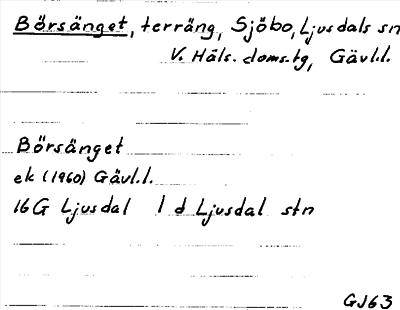 Börsänget, terräng, Sjöbo, Ljusdals sn
V. Häls. doms.tg, Gävl.l.
Börsänget
ek (1960) Gävl.l.
16G Ljusdal 1 d Ljusdal stn
GJ63